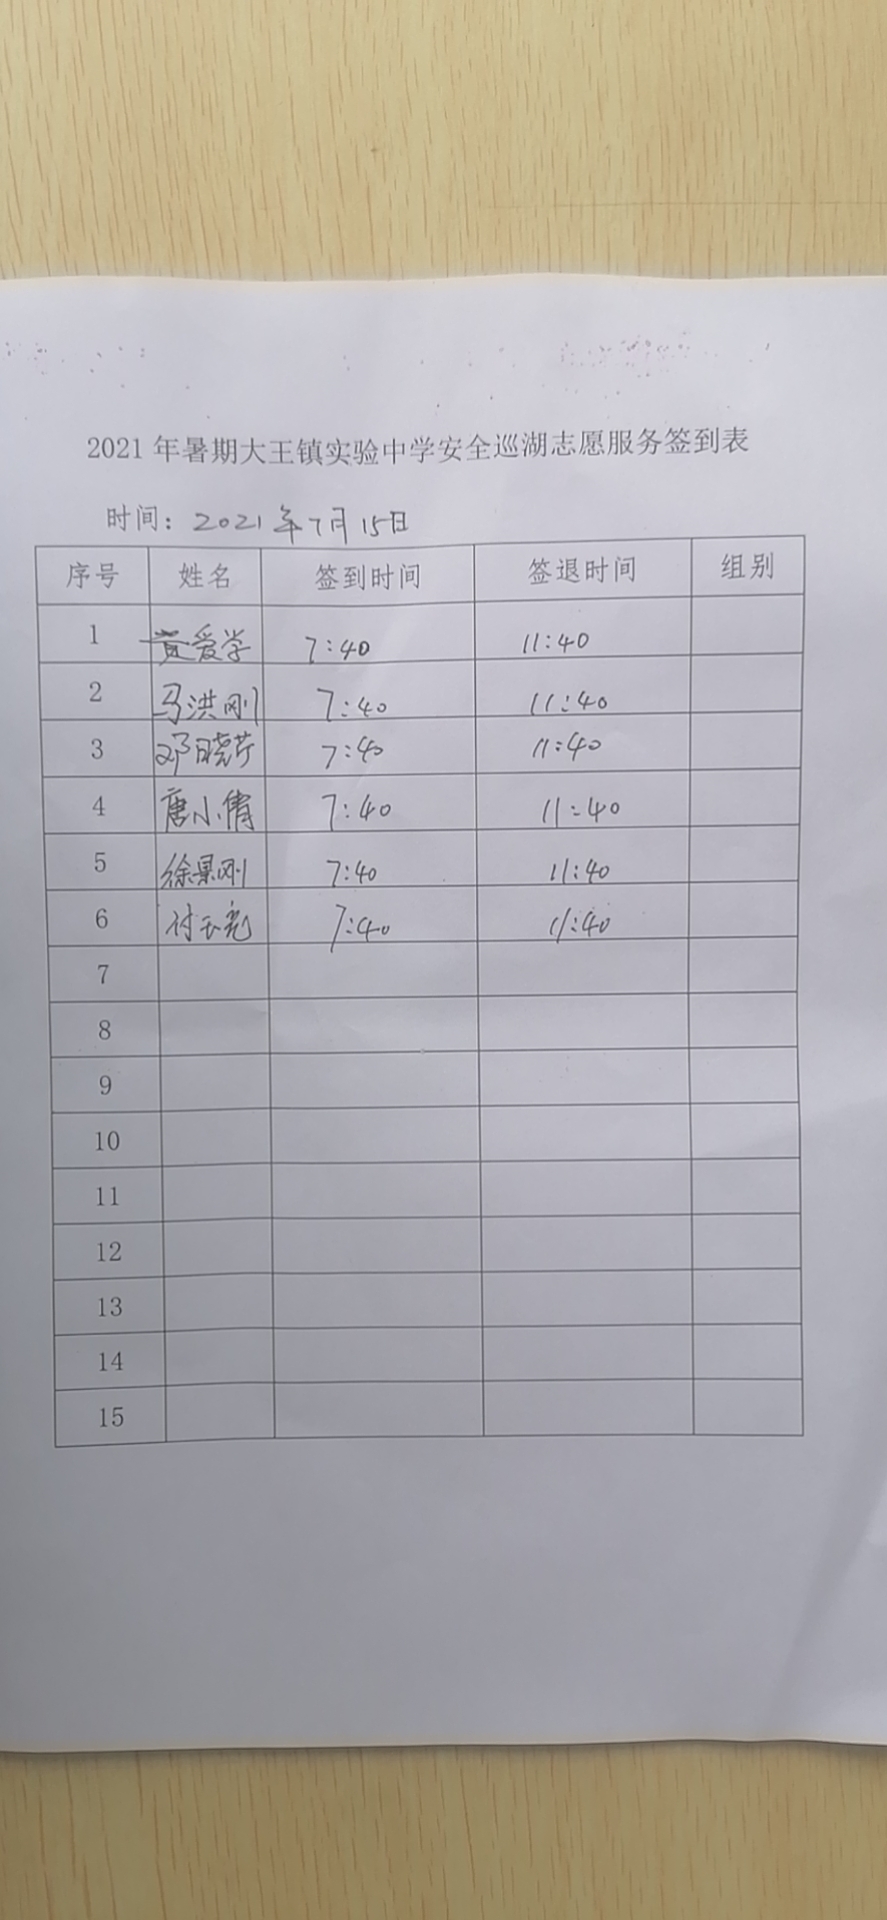 2021年暑期大王镇实验中学安全巡湖志愿服务签到表
时间：2021年7月15日
序号 姓名 签到时间 签退时间 组别
1 黄爱学 7:40 11:40
2 马洪刚 7:40 11:40
3 邓晓芹 7:40 11:40
4 唐小倩 7:40 11:40
5 徐果刚 7:40 11:40
6 付玉亮 7:40 11:40
7
8
9
10
11
12
13
14
15